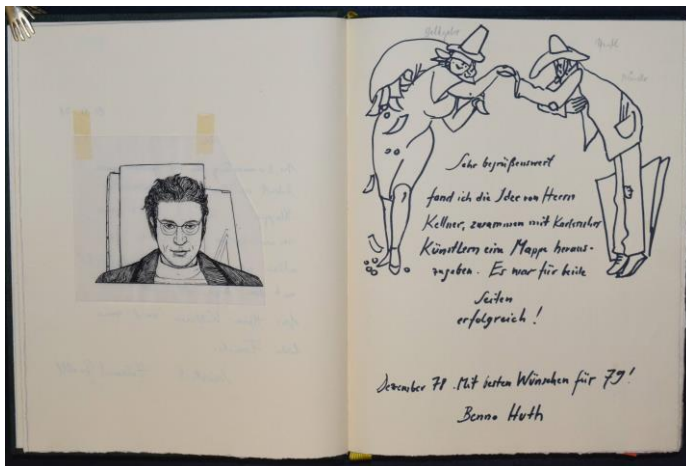 Sehr begrüßenswert
fand ich die Idee von Herrn
Kellner, zusammen mit Karlsruher
Künstlern eine Mappe heraus-
zugeben. Es war für beide
Seiten
erfolgreich!
Dezember 78. Mit besten Wünschen für 79!
Benno Huth